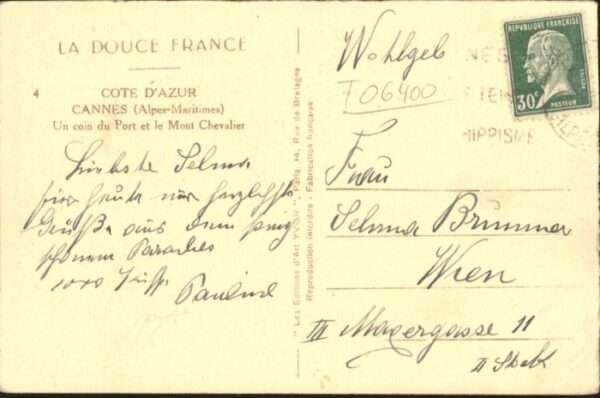 LA DOUCE FRANCE
4
COTE D'AZUR
CANNES (Alpes-Maritimes)
Un coin du Port et le Mont Chevalier
Liebste Selma
für heute nur herzlichste
Grüße aus dem
schönen Paradies
1000
Pauline
"Les Editions d'Art YVON", Paris, Rue de Bretagne
Reproduction interdite - Fabrication française
Wohlgeb
T 06400
Frau
Selma Brunner
Wien
III Mayergasse 11
II Stock
REPUBLIQUE FRANÇAISE
30c
POSTES
PASTEUR
NES
HIPPISME